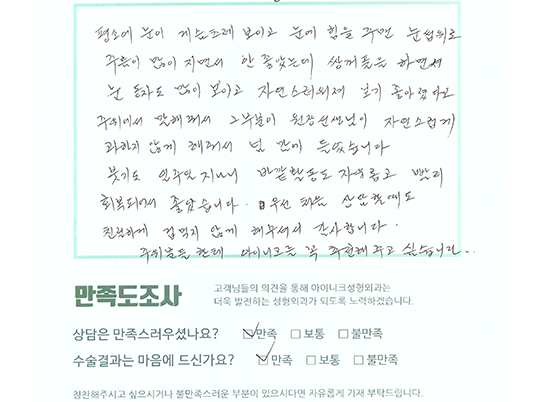 평소에 눈이 게슴츠레 보이고 눈에 힘을 주면 눈썹위로
주름이 많이 지면서 안 좋았는데 쌍꺼풀을 하면서
눈 동자도 많이 보이고 자연스러워져 보기 좋아졌다고
주위에서 말해줘서 그부분이 원장선생님이 자연스럽게
과하지 않게 해줘서 넘 맘에 들었습니다
붓기도 일주일 지나니 바깥활동도 자유롭고 빨리
회복되어서 좋았습니다. 우선 처음 상담할때도
친절하게 겁먹지 않게 해주셔서 감사합니다.
주위분들한테 아이니크는 꼭 추천해 주고 싶습니다..
만족도조사
고객님들의 의견을 통해 아이니크성형외과는
더욱 발전하는 성형외과가 되도록 노력하겠습니다.
상담은 만족스러우셨나요? ☑만족 □보통 □불만족
수술결과는 마음에 드신가요? ☑만족 □보통 □불만족
칭찬해주시고 싶으시거나 불만족스러운 부분이 있으시다면 자유롭게 기재 부탁드립니다.